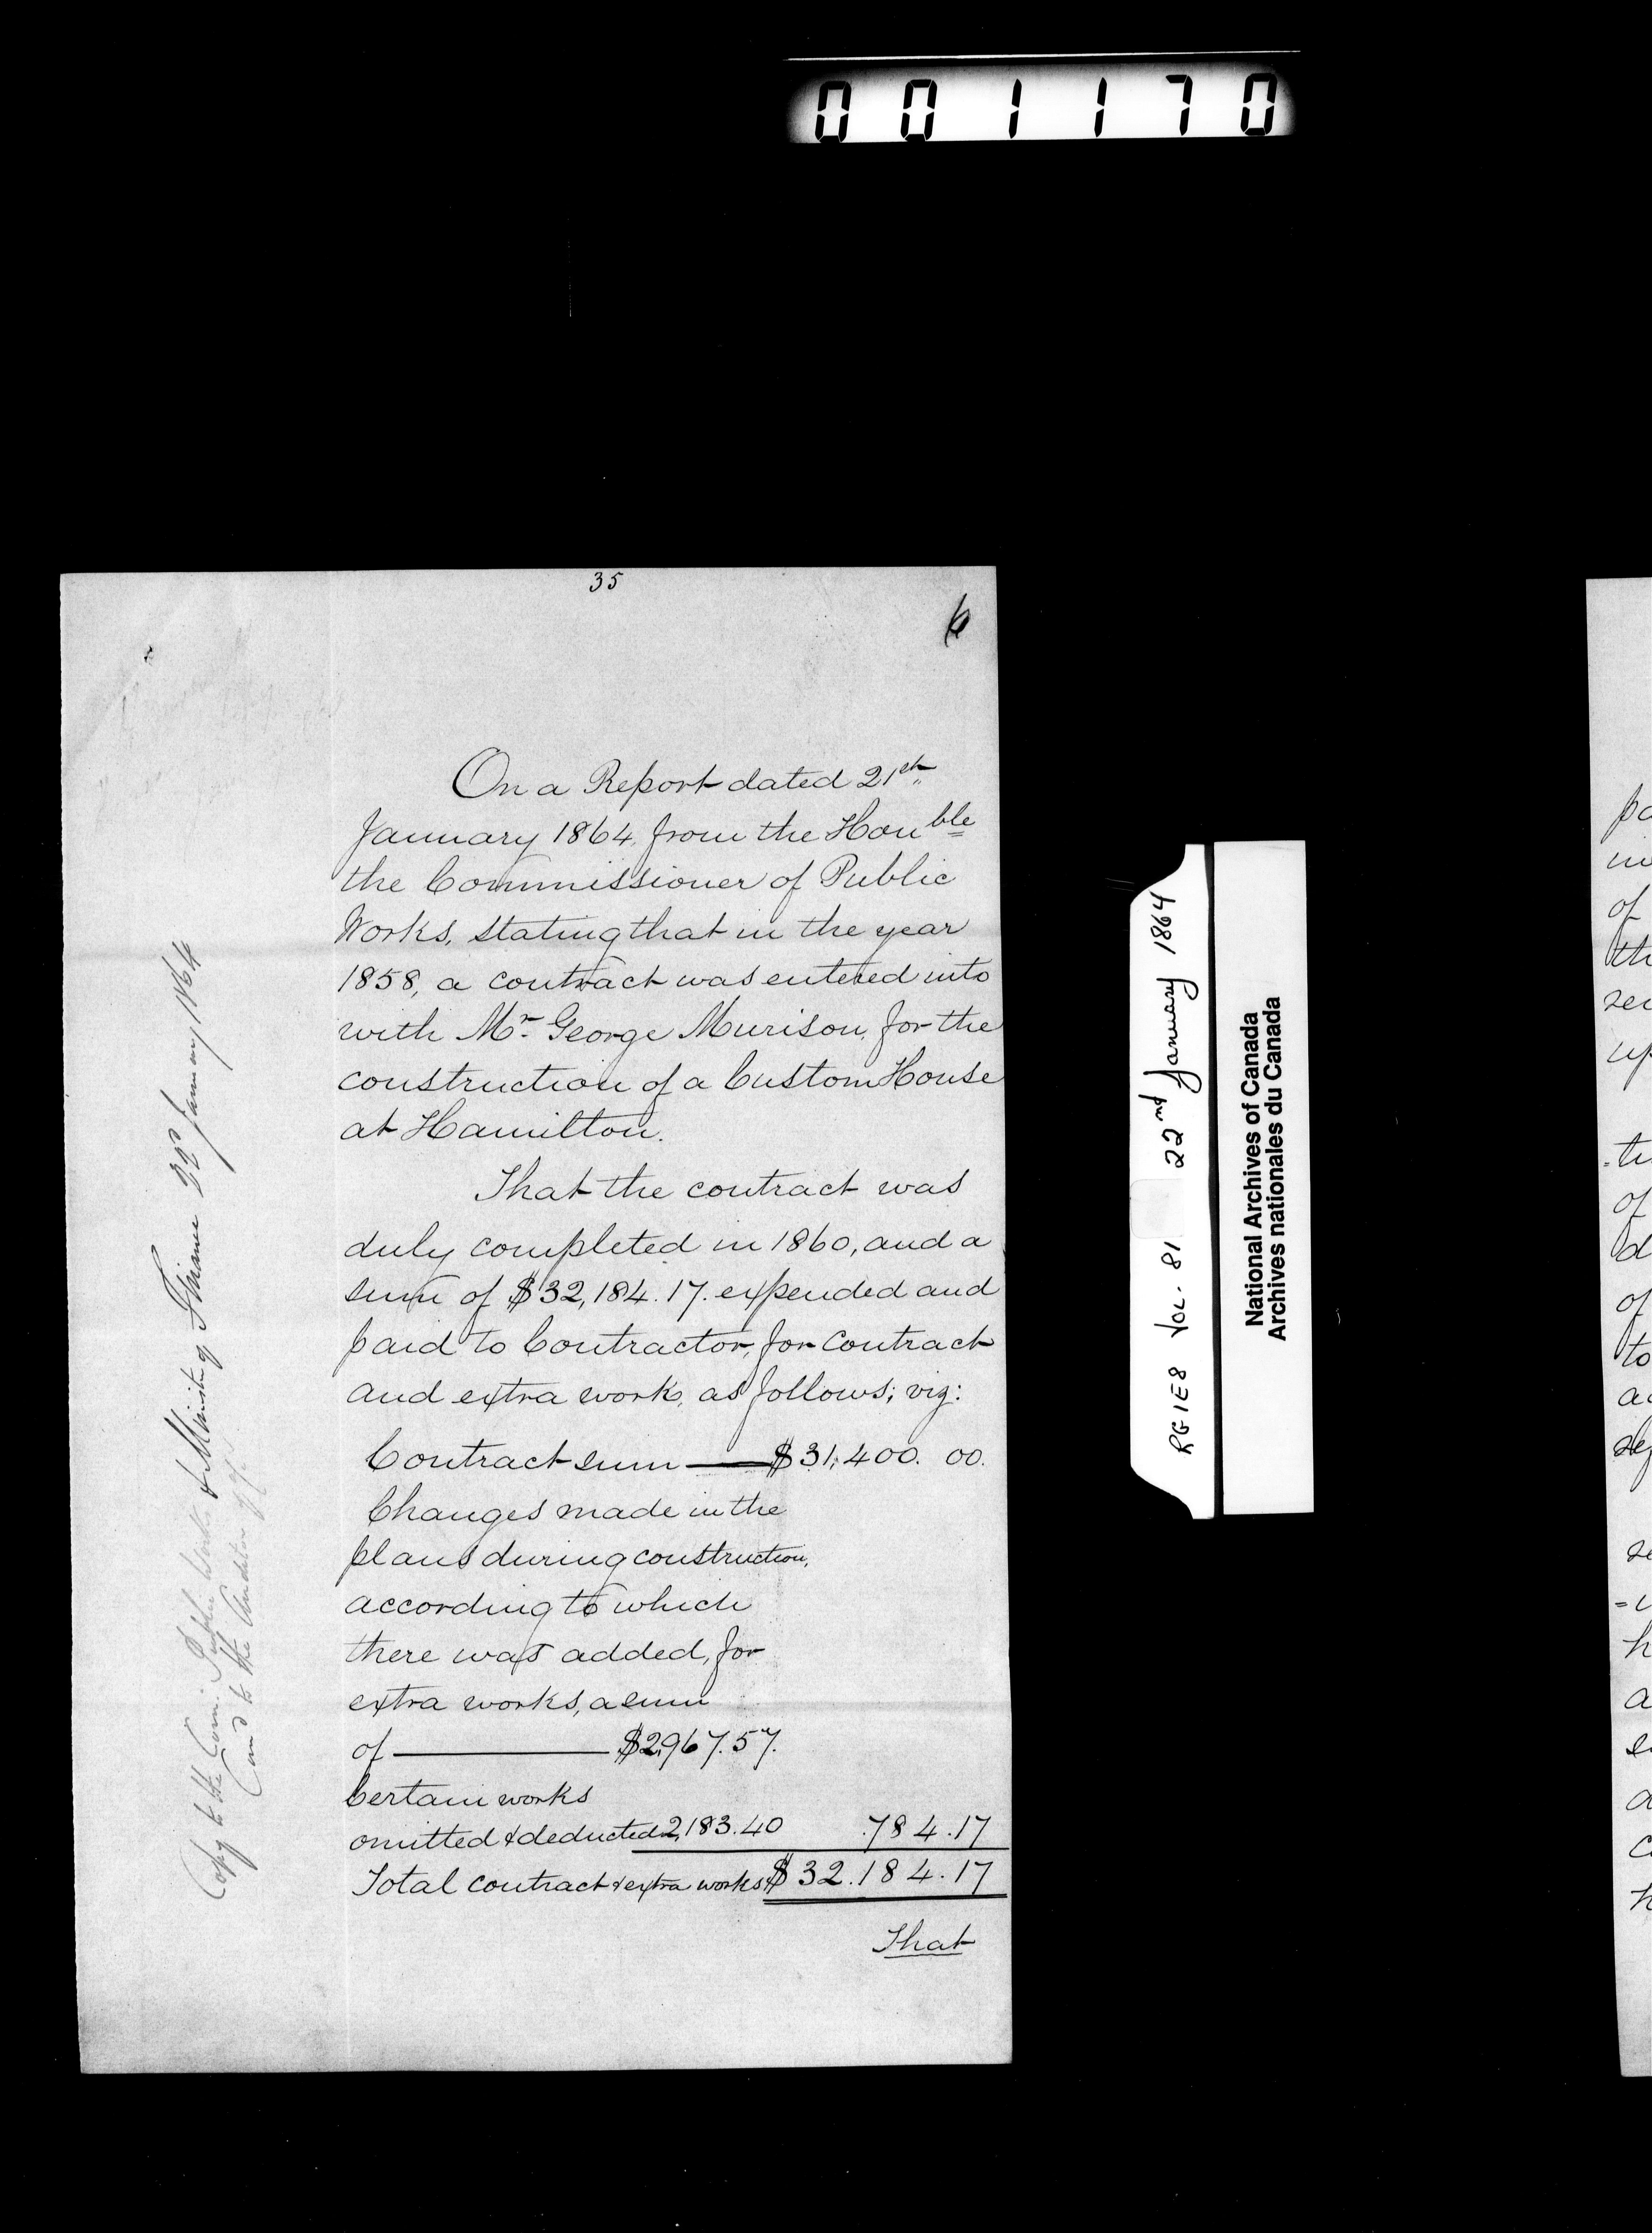 001170
35
6
On a Report dated 21st
January 1864, from the Honble
the Commissioner of Public
Works, stating that in the year
1858, a contract was entered into
with Mr. George Murison, for the
construction of a Custom House
at Hamilton.
That the contract was
duly completed in 1860, and a
sum of $32,184.17. expended and
paid to Contractor, for contract
and extra work, as follows; viz:
Contract sum — $31,400. 00.
Changes made in the
plans during construction,
according to which
there was added, for
extra works, a sum
of — $2,967.57.
Certain works
omitted & deducted 2,183.40 784.17
Total contract & extra works $32.184.17
That
Copy to the Com. Public Works & Minister of Finance 22d January 1864
and to the Auditor
RG1E8 VOL. 81 22nd January 1864
National Archives of Canada
Archives nationales du Canada
pa
of
th
up
of
of
to
h
a